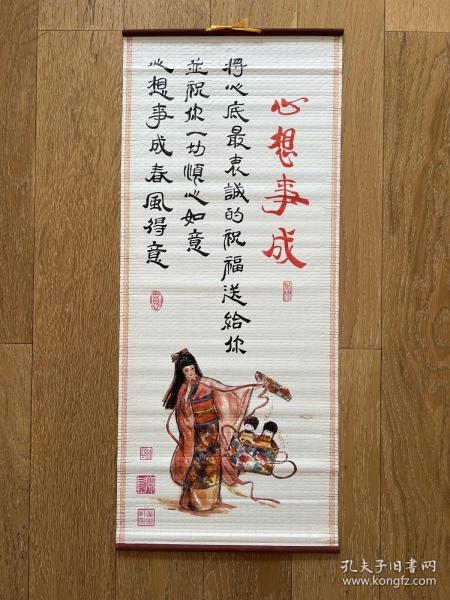 心想事成
將心底最衷誠的祝福送給你
並祝你一切順心如意
心想事成春風得意
孔夫子旧书网
www.kongfz.com